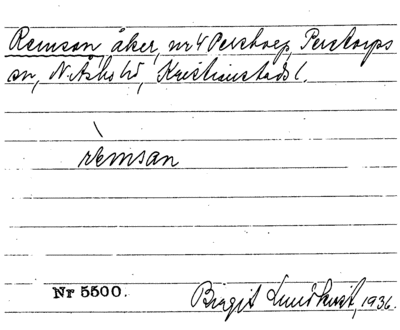 Remsan åker, nr 4 Perstorp, Perstorps
sn, N. Åsbo hd, Kristianstads l.
rèmsan
Nr 5500.
Birgit Lundkvist, 1936.